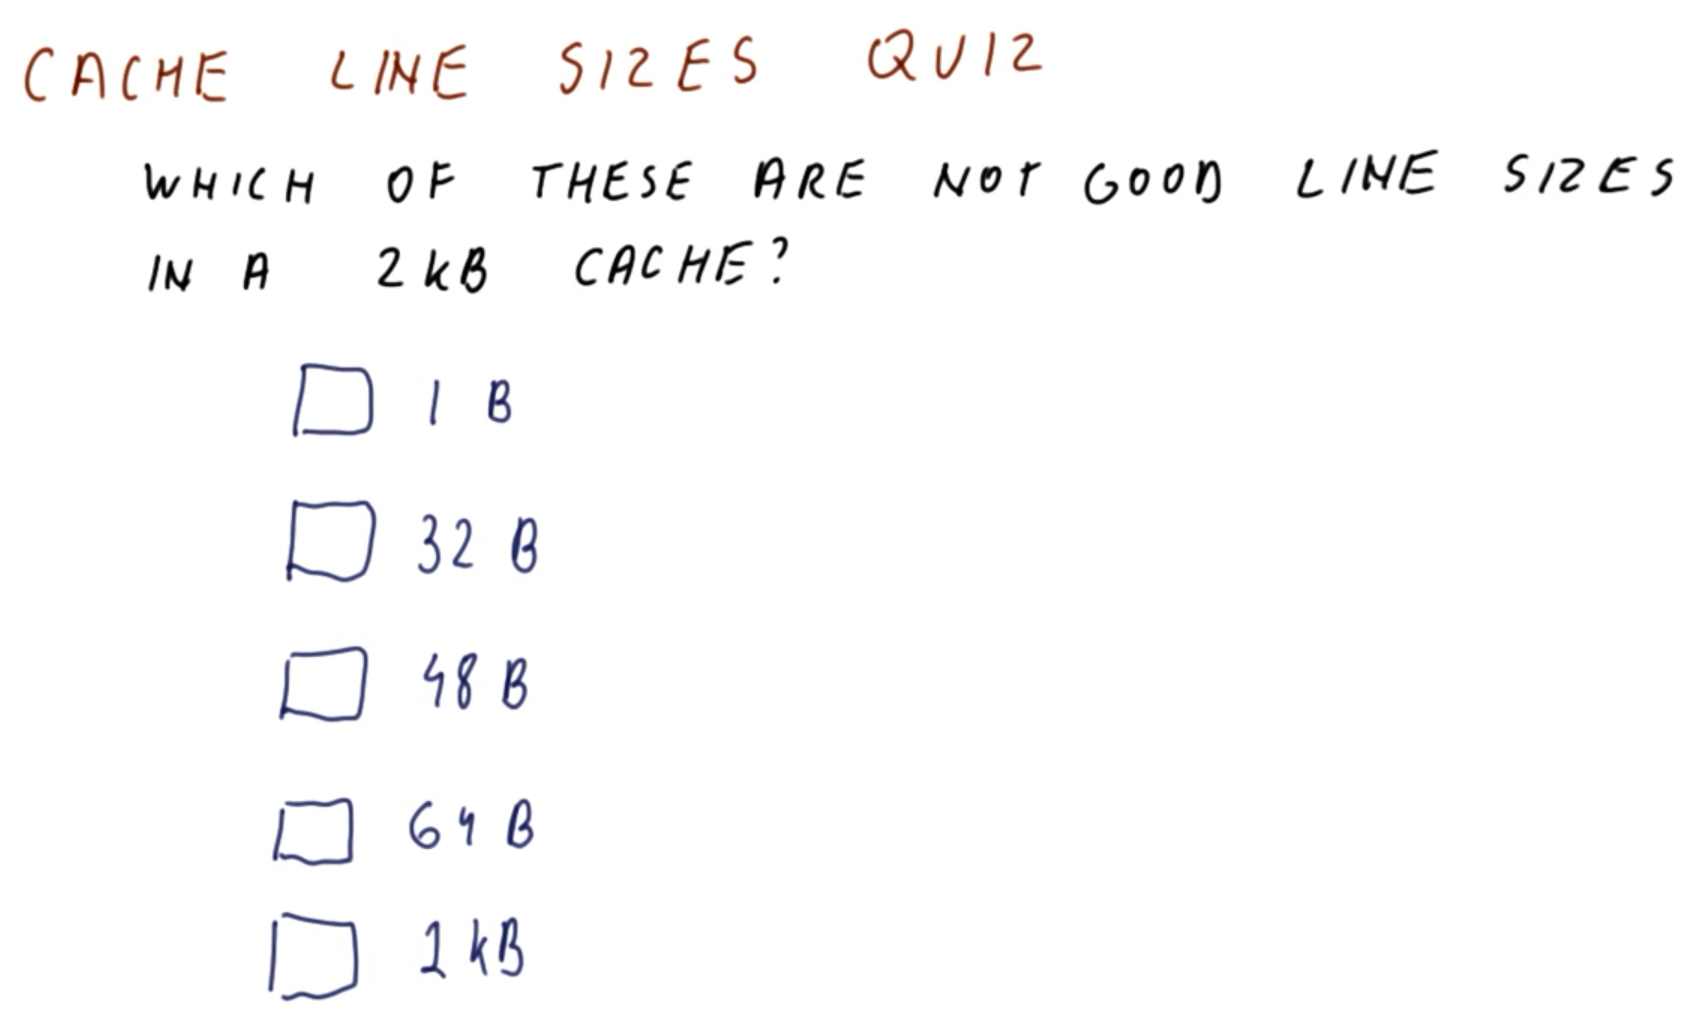 CACHE LINE SIZES QUIZ
WHICH OF THESE ARE NOT GOOD LINE SIZES
IN A 2 kB CACHE?
1 B
32 B
48 B
64 B
1 kB